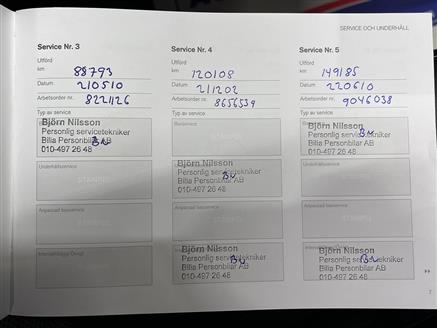 SERVICE OCH UNDERHÅLL
Service Nr. 3
Utförd
km 88793
Datum 210510
Arbetsorder nr. 8221126
Typ av service
Björn Nilsson
Personlig servicetekniker
Bilia Personbilar AB
010-497 26 48
Underhållsservice
STÄMPEL
Anpassad basservice
STÄMPEL
Service Nr. 4
Utförd
km 120108
Datum 211202
Arbetsorder nr. 8656539
Typ av service
Basservice
Björn Nilsson
Personlig servicetekniker
Bilia Personbilar AB
010-497 26 48
Anpassad basservice
Björn Nilsson
Personlig servicetekniker
Bilia Personbilar AB
010-497 26 48
Service Nr. 5
Utförd
km 149185
Datum 220610
Arbetsorder nr. 9046038
Typ av service
Björn Nilsson
Personlig servicetekniker
Bilia Personbilar AB
010-497 26 48
Underhållsservice
Anpassad basservice
STÄMPEL
Björn Nilsson
Personlig servicetekniker
Bilia Personbilar AB
010-497 26 48
7